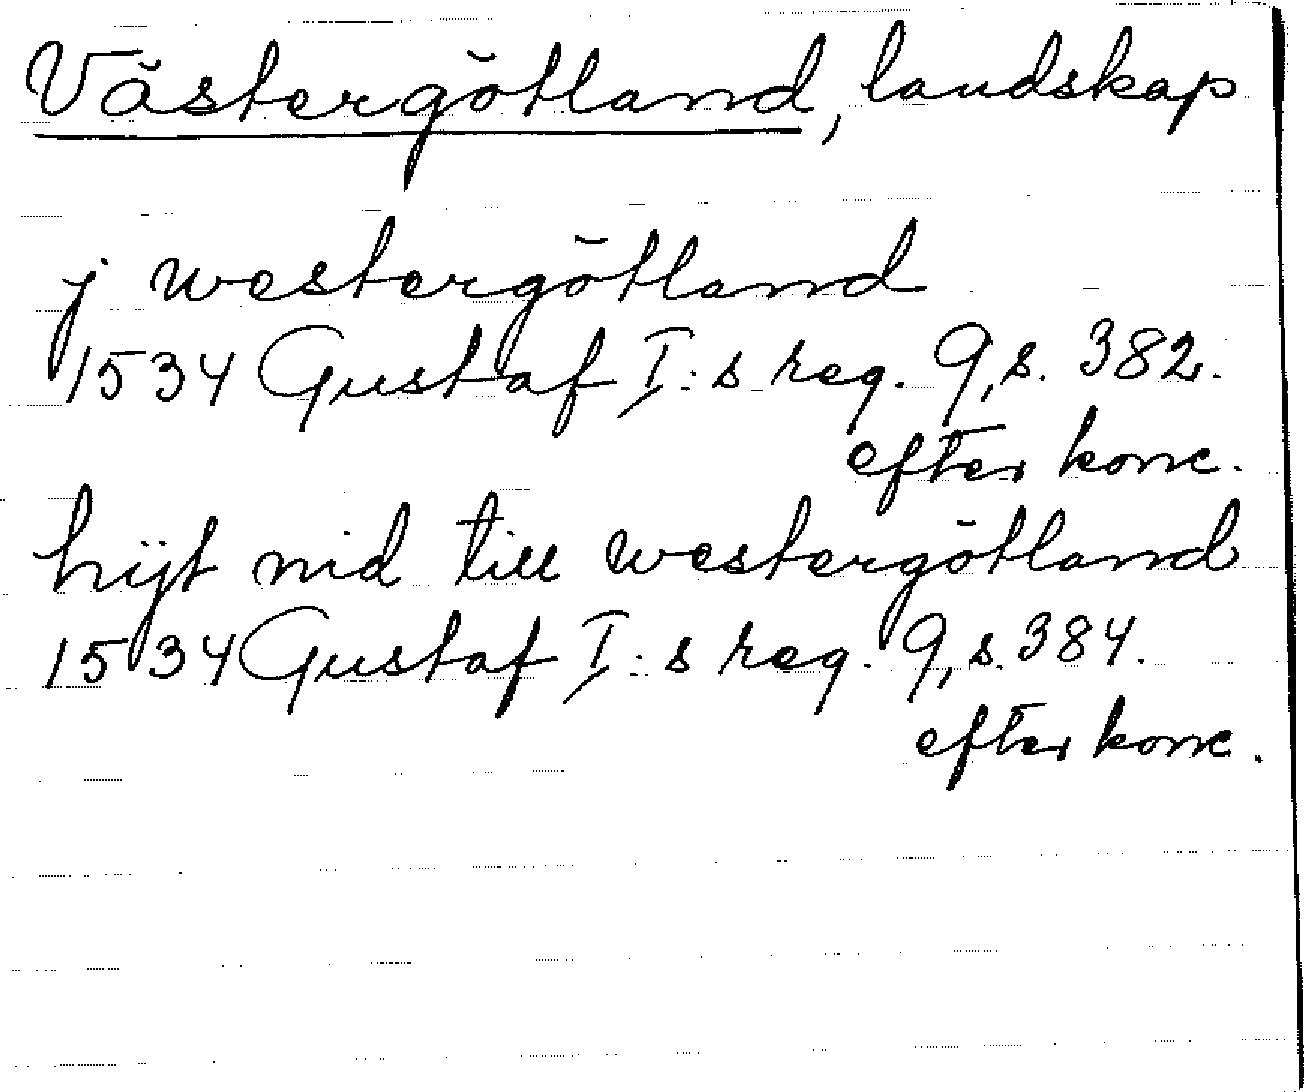 Västergötland, landskap
j westergötland
1534 Gustaf I:s reg. 9, s. 382.
efter konc.
hijt nid till westergötland
1534 Gustaf I:s reg. 9, s. 384.
efter konc.